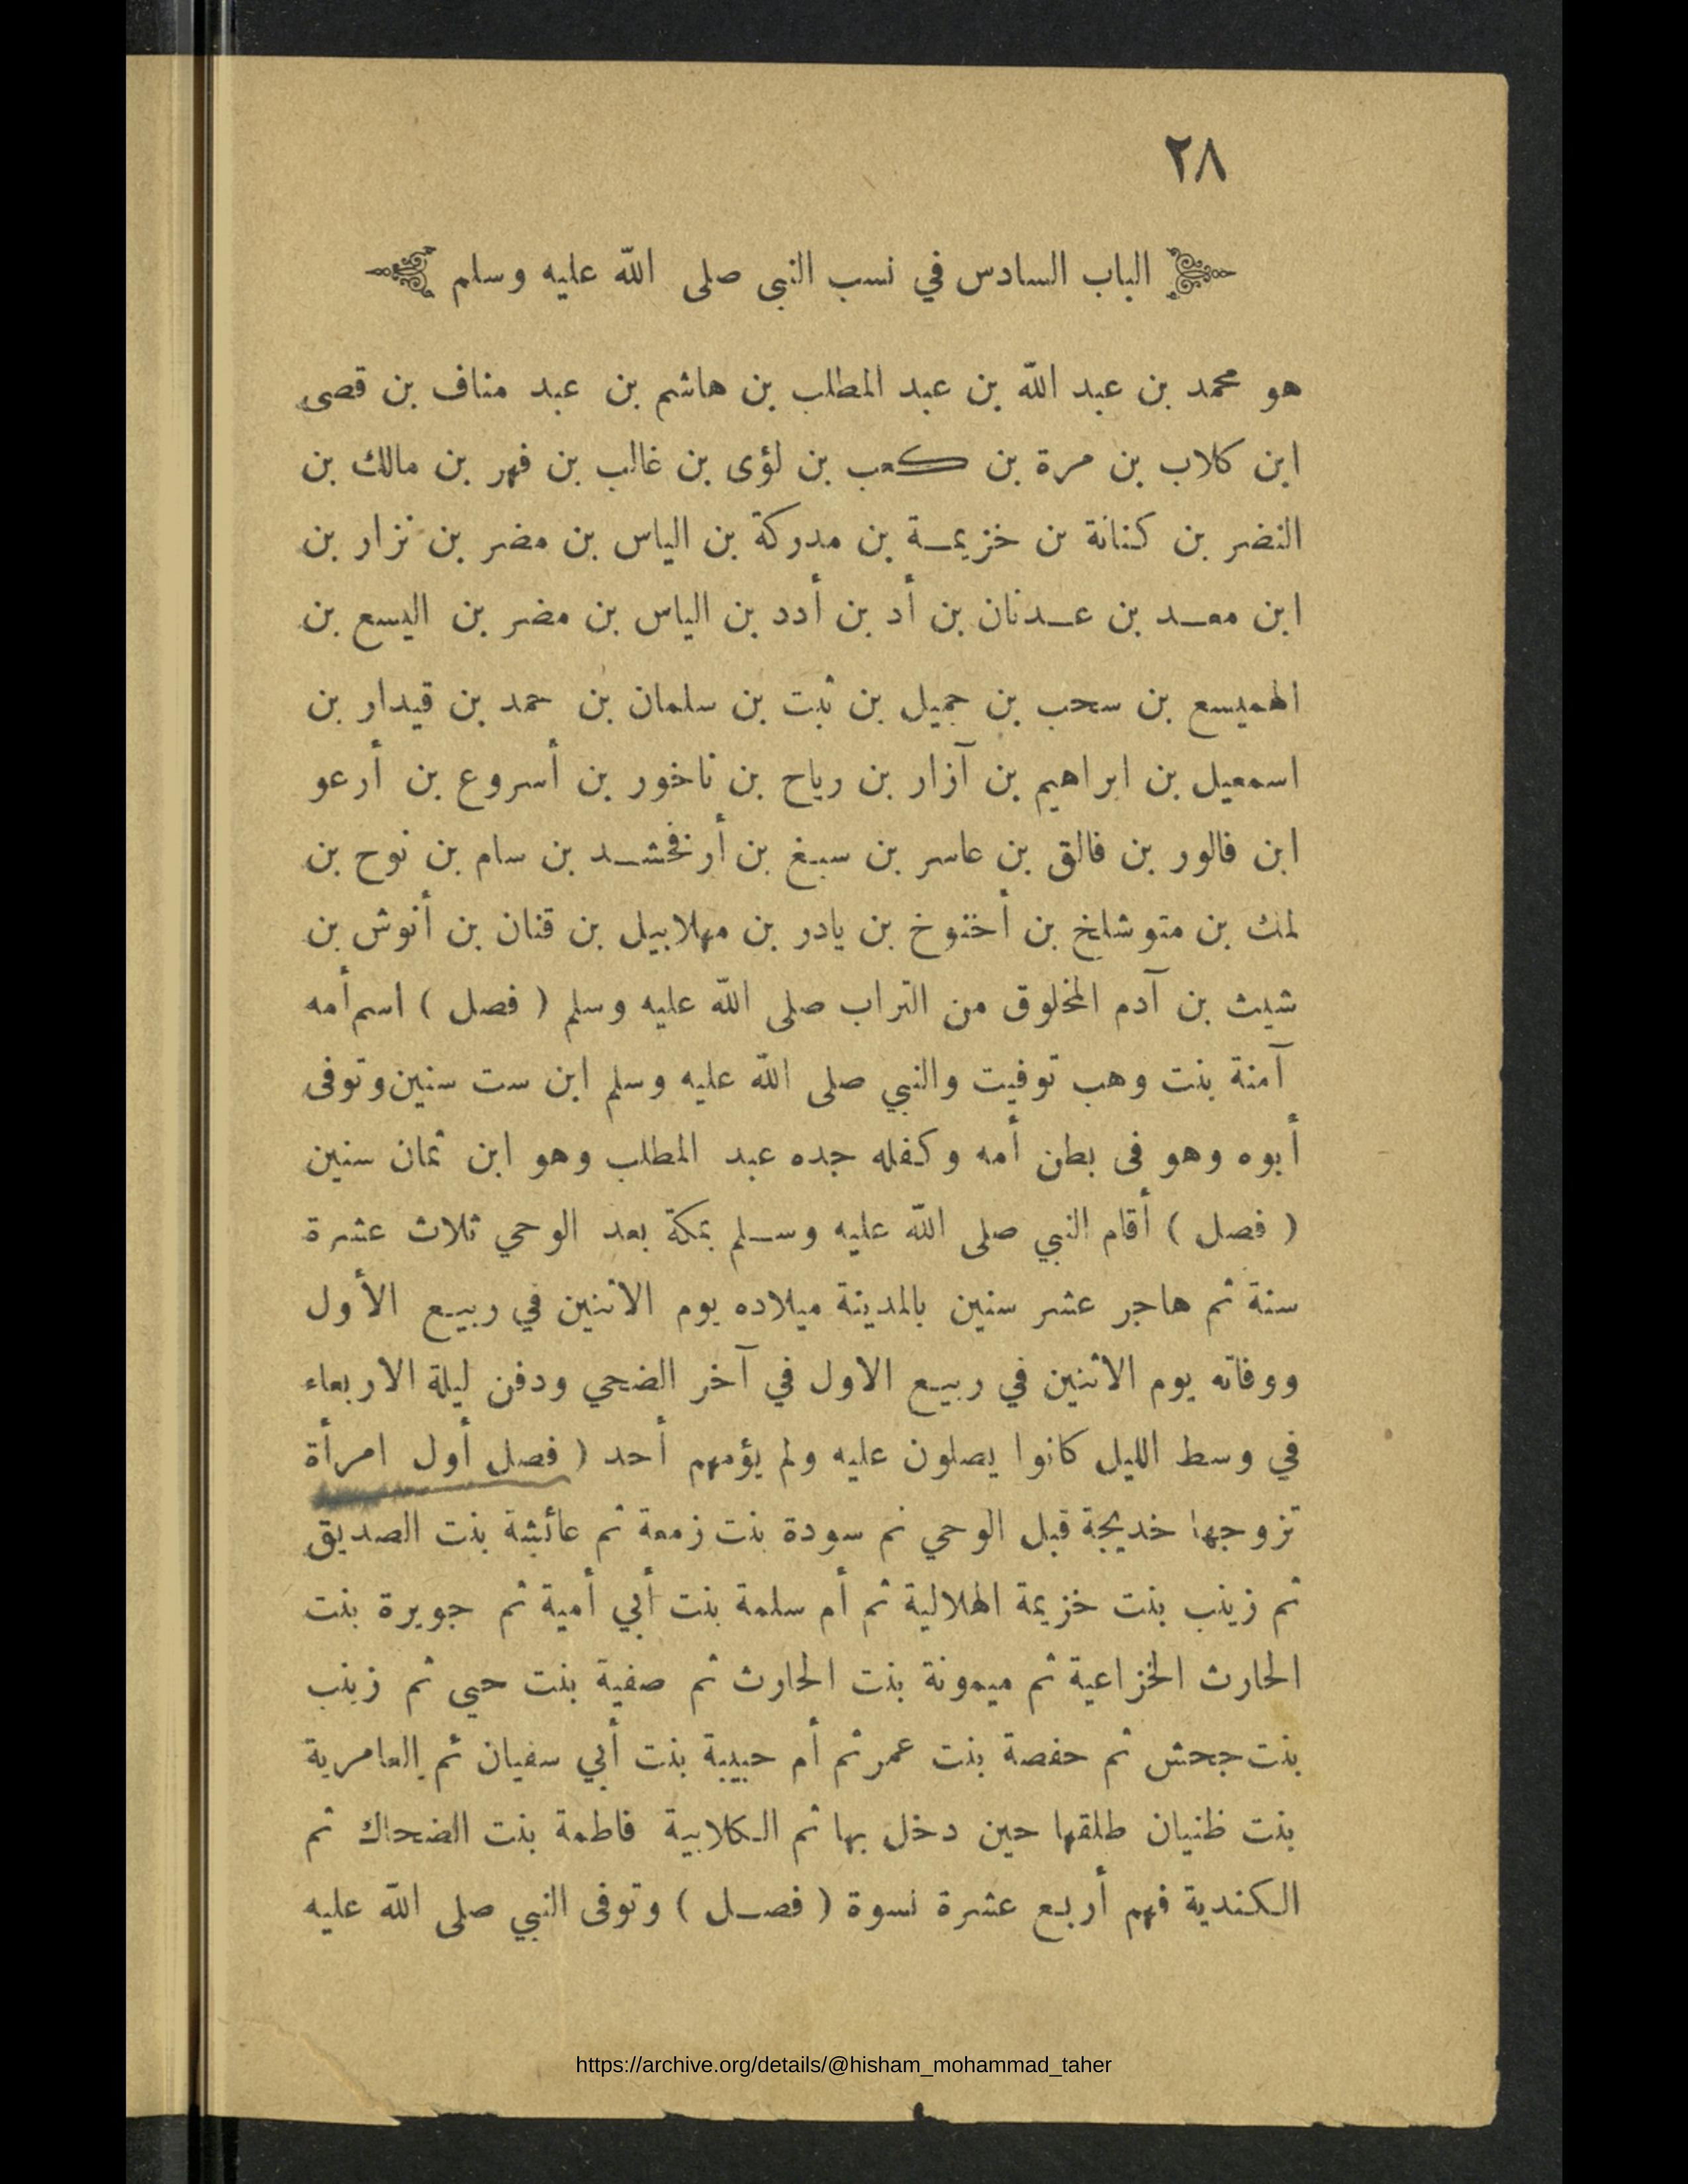 ٢٨
الباب السادس في نسب النبى صلى الله عليه وسلم
هو محمد بن عبد الله بن عبد المطلب بن هاشم بن عبد مناف بن قصى
ابن كلاب بن مرة بن كعب بن لؤى بن غالب بن فهر بن مالك بن
النضر بن كنانة بن خزيمة بن مدركة بن الياس بن مضر بن نزار بن
ابن معد بن عدنان بن أد بن أدد بن الياس بن مضر بن اليسع بن
الهميسع بن سحب بن جميل بن ثبت بن سلمان بن حمد بن قيدار بن
اسمعيل بن ابراهيم بن آزار بن رياح بن ناخور بن أسروع بن أرعو
ابن فالور بن فالق بن عاسر بن سبغ بن أرفخشد بن سام بن نوح بن
لمك بن متوشلخ بن أخنوخ بن يادر بن مهلابيل بن قنان بن أنوش بن
شيث بن آدم المخلوق من التراب صلى الله عليه وسلم ( فصل ) اسم أمه
آمنة بنت وهب توفيت والنبي صلى الله عليه وسلم ابن ست سنين وتوفى
أبوه وهو فى بطن أمه وكفله جده عبد المطلب وهو ابن ثمان سنين
( فصل ) أقام النبي صلى الله عليه وسلم بمكة بعد الوحي ثلاث عشرة
سنة ثم هاجر عشر سنين بالمدينة ميلاده يوم الاثنين في ربيع الأول
ووفاته يوم الاثنين في ربيع الاول في آخر الضحي ودفن ليلة الاربعاء
في وسط الليل كانوا يصلون عليه ولم يؤمهم أحد ( فصل أول امرأة
تزوجها خديجة قبل الوحي ثم سودة بنت زمعة ثم عائشة بنت الصديق
ثم زينب بنت خزيمة الهلالية ثم أم سلمة بنت أبي أمية ثم جويرة بنت
الحارث الخزاعية ثم ميمونة بنت الحارث ثم صفية بنت حيى ثم زينب
بنت جحش ثم حفصة بنت عمر ثم أم حبيبة بنت أبي سفيان ثم العامرية
بنت ظنيان طلقها حين دخل بها ثم الكلابية فاطمة بنت الضحاك ثم
الكندية فهم أربع عشرة نسوة ( فصل ) وتوفى النبي صلى الله عليه
https://archive.org/details/@hisham_mohammad_taher